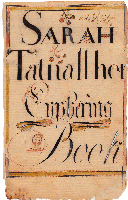 SARAH
Tatnall her
Cyphering
Book